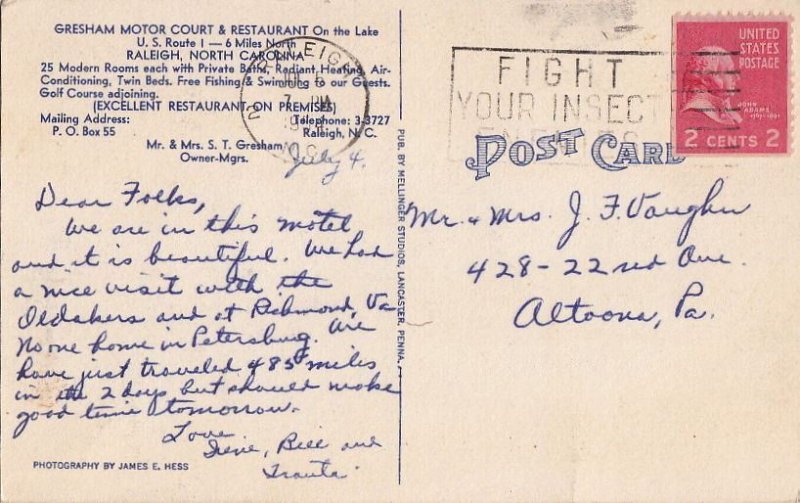 GRESHAM MOTOR COURT & RESTAURANT On the Lake
U. S. Route 1 — 6 Miles North
RALEIGH, NORTH CAROLINA
25 Modern Rooms each with Private Baths, Radiant Heating, Air-
Conditioning, Twin Beds. Free Fishing & Swimming to our Guests.
Golf Course adjoining.
(EXCELLENT RESTAURANT ON PREMISES)
Mailing Address: Telephone: 3-3727
P. O. Box 55 Raleigh, N. C.
Mr. & Mrs. S. T. Gresham
Owner-Mgrs.
July 4.
Dear Folks,
We are in this motel
and it is beautiful. We had
a nice visit with the
Oldakers and at Richmond, Va
No one home in Petersburg. Are
have just traveled 485 miles
in the 2 days but should make
good time tomorrow.
Love
Irene, Bill and
PHOTOGRAPHY BY JAMES E. HESS
PUB. BY MELLINGER STUDIOS, LANCASTER, PENNA.
RALEIGH
N. C.
FIGHT
YOUR INSECT
UNITED
STATES
POSTAGE
JOHN
ADAMS
1797-1801
2 CENTS 2
POST CARD
Mr. & Mrs. J. F. Vaughn
428 - 22nd Ave.
Altoona, Pa.